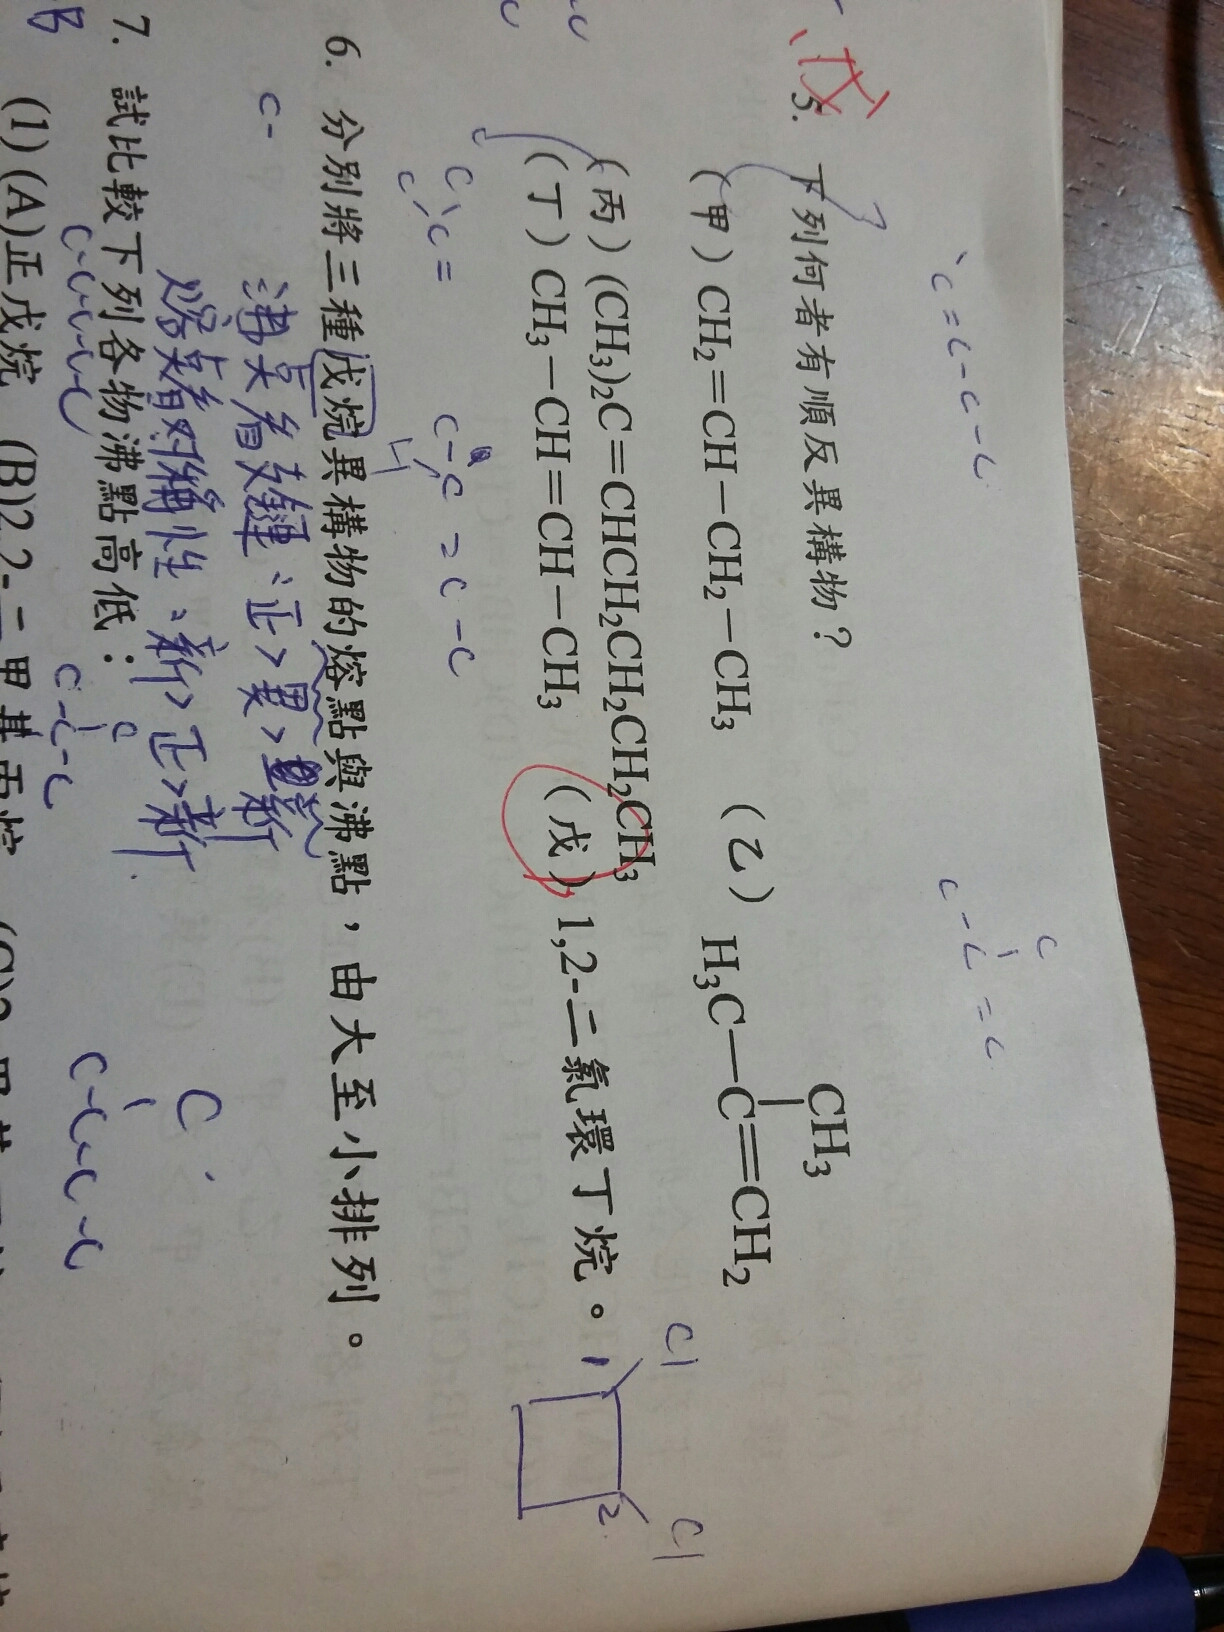 C=C-C-C
C
C-C=C
戊
5. 下列何者有順反異構物？
CH₃
(甲) CH₂=CH-CH₂-CH₃ (乙) H₃C-C=CH₂
(丙) (CH₃)₂C=CHCH₂CH₂CH₂CH₂CH₃
Cl
Cl
(丁) CH₃-CH=CH-CH₃ (戊) 1,2-二氯環丁烷。
1
2
C-C=C-C
6. 分別將三種戊烷異構物的熔點與沸點，由大至小排列。
沸點看支鏈:正>異>新
熔點看對稱性:新>正>新
C
7. 試比較下列各物沸點高低：
C-C-C-C
C
C-C-C
C-C-C-C
(1)(A)正戊烷 (B)2,2-二甲基丙烷